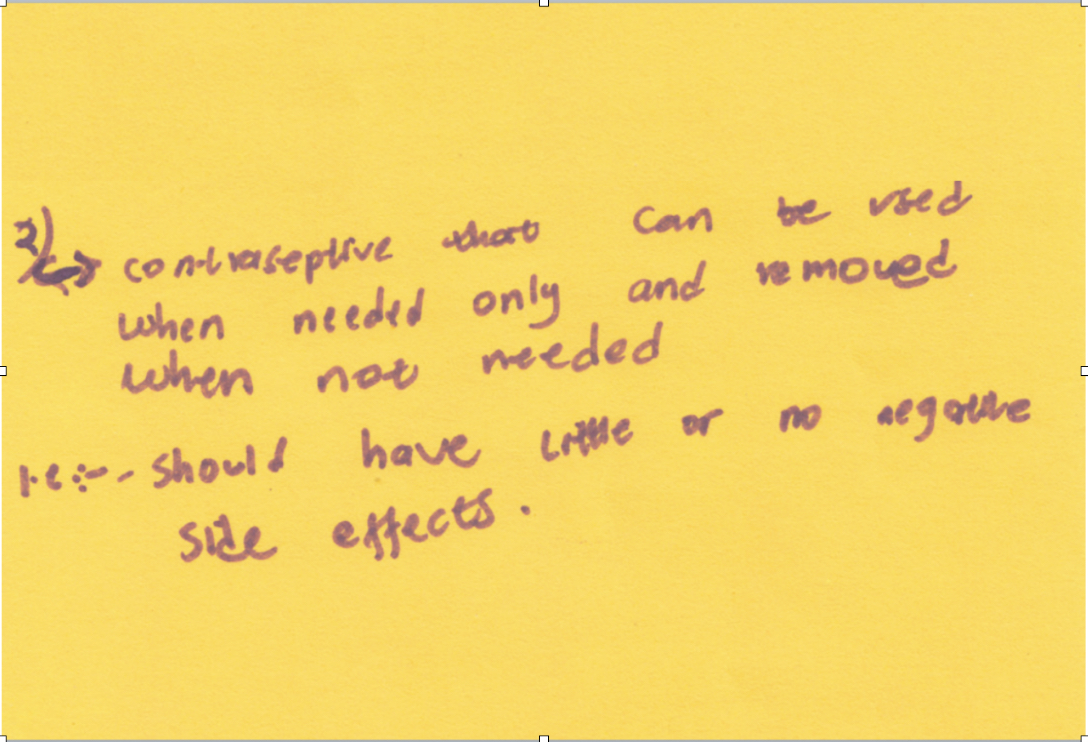 2) → contraseptive that can be used
when needed only and removed
when not needed
i.e :- - should have little or no negative
side effects.